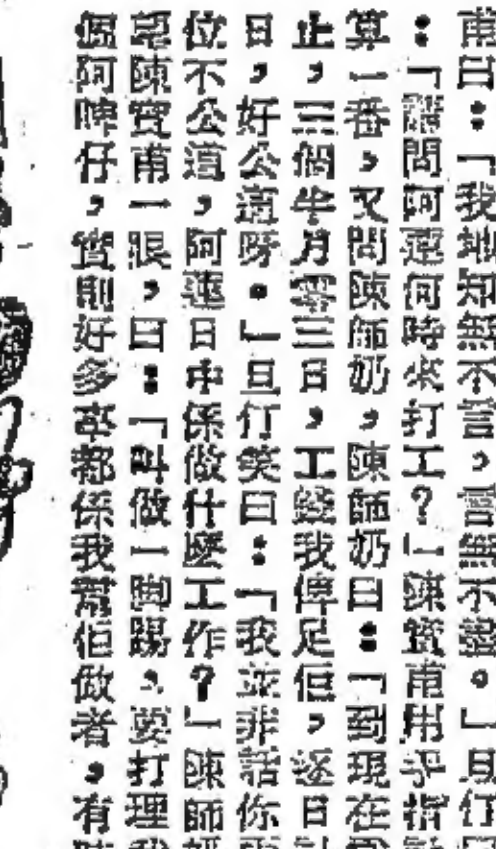 甫曰：「我地知無不言，言無不盡。」且行
：「請問阿蓮何時來打工？」陳寶甫用手指
算一番，又問陳師奶，陳師奶曰：「到現在
止，三個半月零三日，工錢我俾足佢，逐日
日，好公道呀。」旦行笑曰：「我並非話你
位不公道，阿蓮日中係做什麼工作？」陳師
望陳寶甫一眼，曰：「叫做一脚踢，要打理
個阿啤仔，實則好多嘢都係我幫佢做者，有